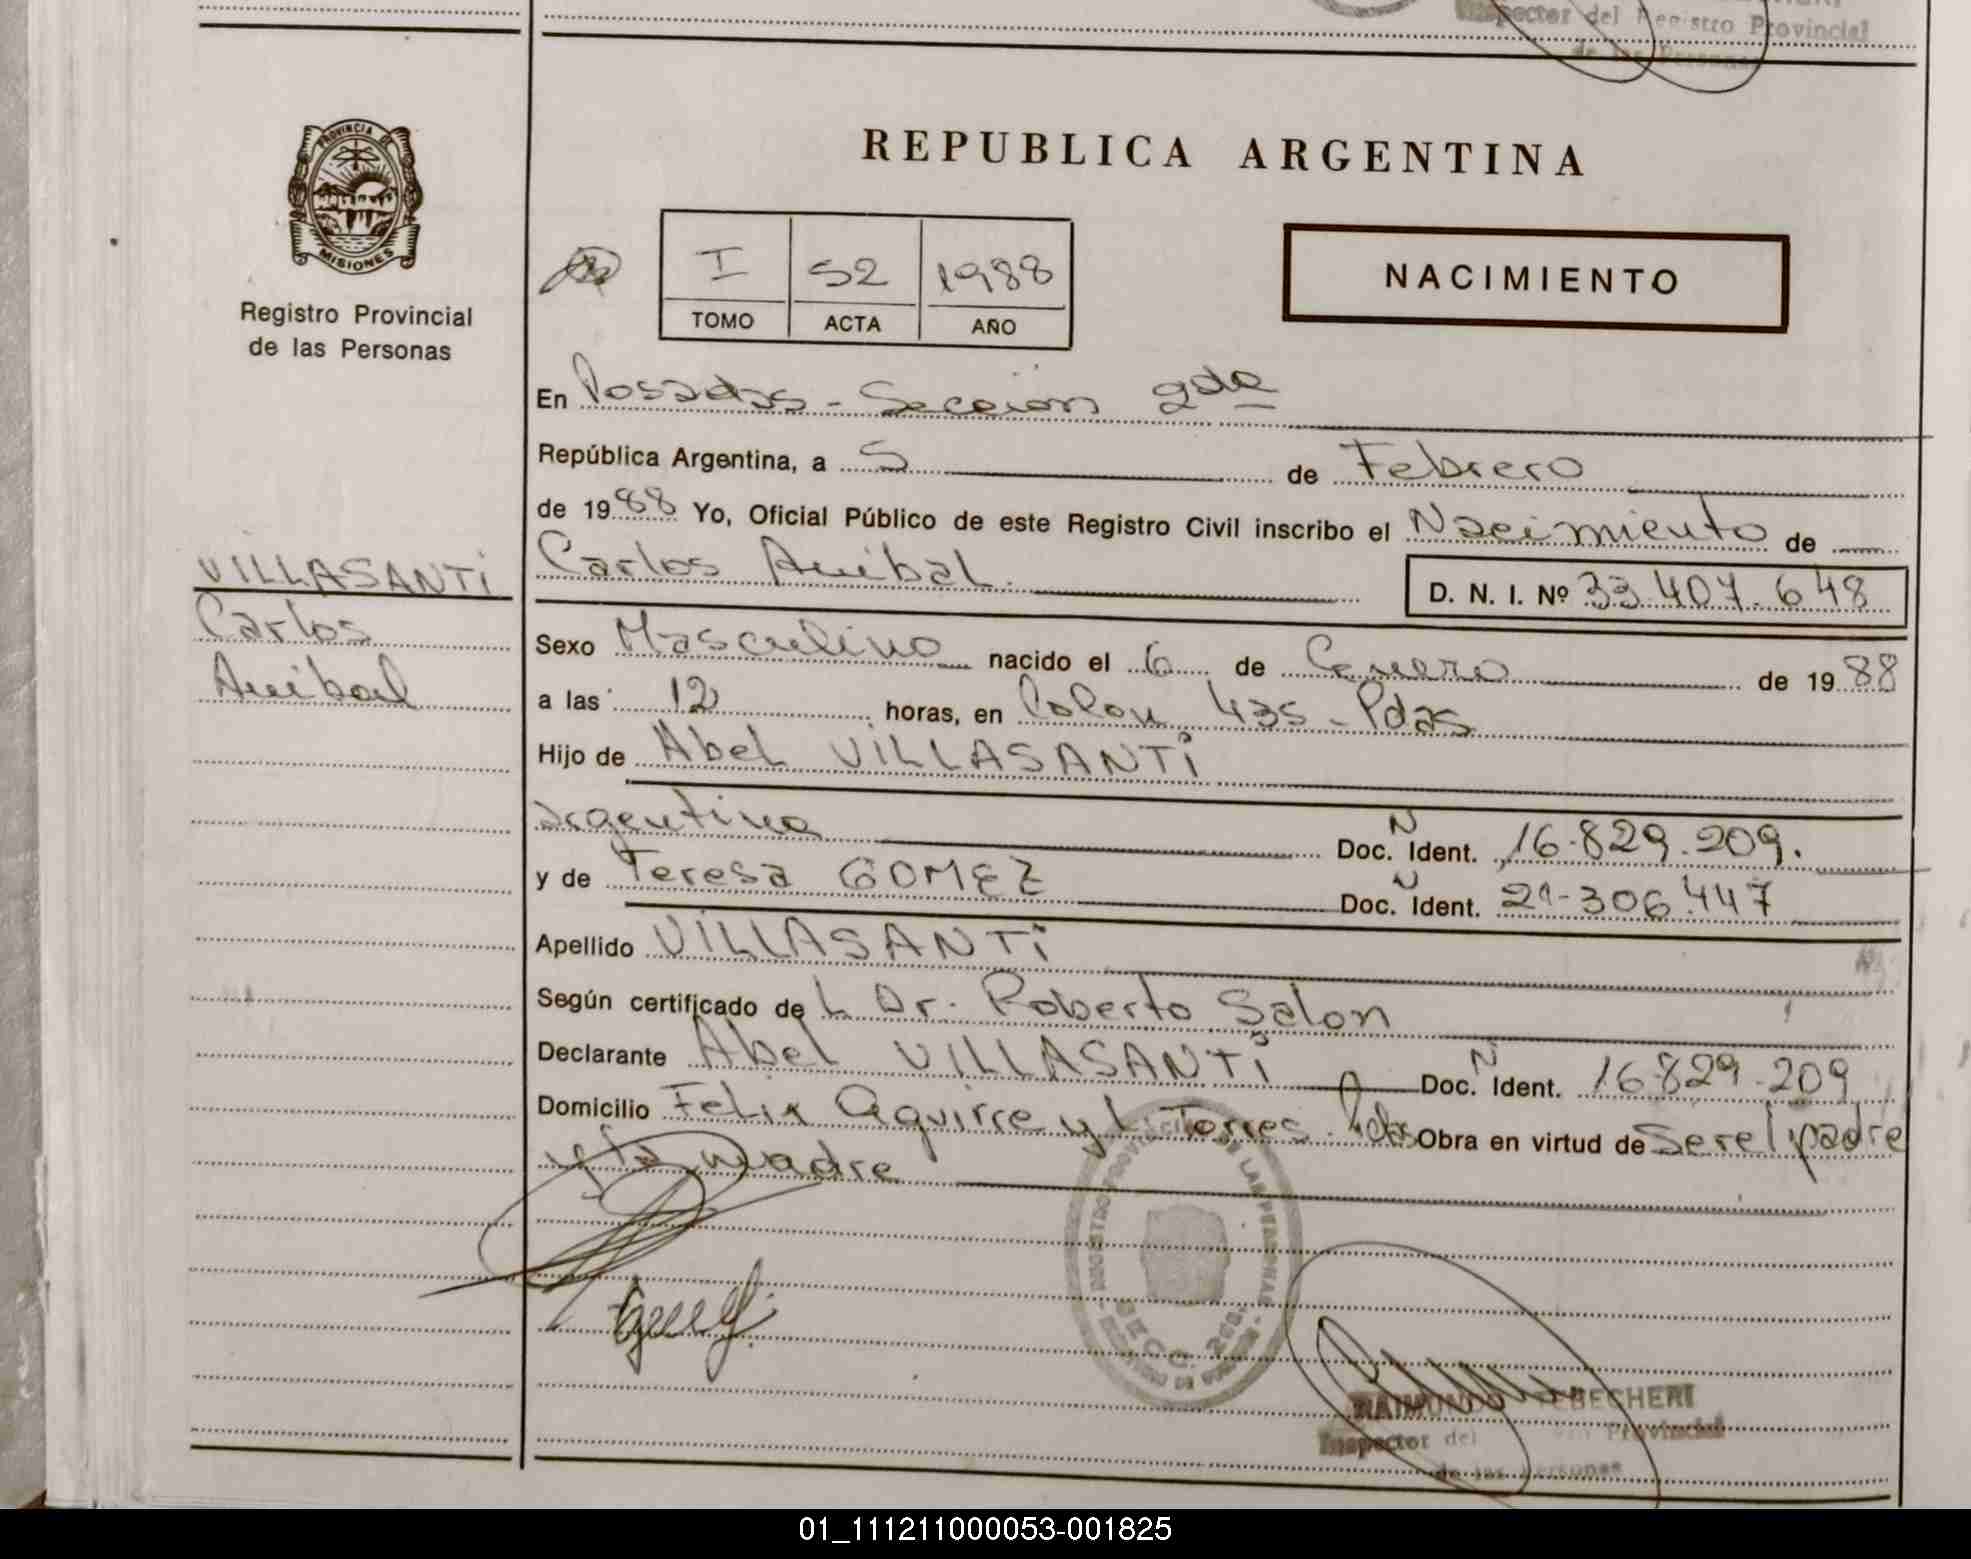 Inspector del Registro Provincial
de las Personas
PROVINCIA DE
MISIONES
Registro Provincial
de las Personas
REPUBLICA ARGENTINA
I 52 1988
TOMO ACTA AÑO
NACIMIENTO
En Posadas - Seccion 2da
República Argentina, a 5 de Febrero
de 1988 Yo, Oficial Público de este Registro Civil inscribo el Nacimiento de
VILLASANTI
Carlos
Anibal
Carlos Anibal. D. N. I. Nº 33.407.648
Sexo Masculino nacido el 6 de Enero de 1988
a las 12 horas, en Colon 435 - Pdas
Hijo de Abel VILLASANTI
argentino Doc. Ident. N 16.829.209.
y de Teresa GOMEZ Doc. Ident. N 21-306.447
Apellido VILLASANTI
Según certificado de L Dr. Roberto Salon
Declarante Abel VILLASANTI Doc. Ident. N 16.829.209
Domicilio Felix Aguirre y L Torres. Pdas Obra en virtud de ser el padre
y la madre
RAIMUNDO TEBECHERI
Inspector del Provincial
de las Personas
01_111211000053-001825